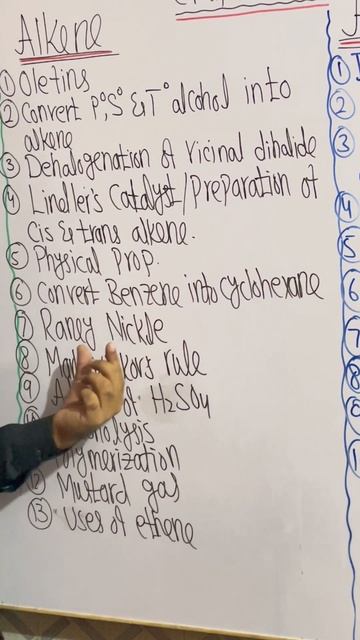 Alkene
① Olefins
② Convert P°, S° & T° alcohol into
alkene
③ Dehalogenation of vicinal dihalide
④ Lindler's Catalyst/Preparation of
Cis & trans alkene.
⑤ Physical Prop.
⑥ Convert Benzene into cyclohexane
⑦ Raney Nickle
⑧ rule
⑨ of H₂SO₄
⑫ Mustard gas
⑬ Uses of ethene
①
②
③
④
⑤
⑥
⑦
⑧
⑨